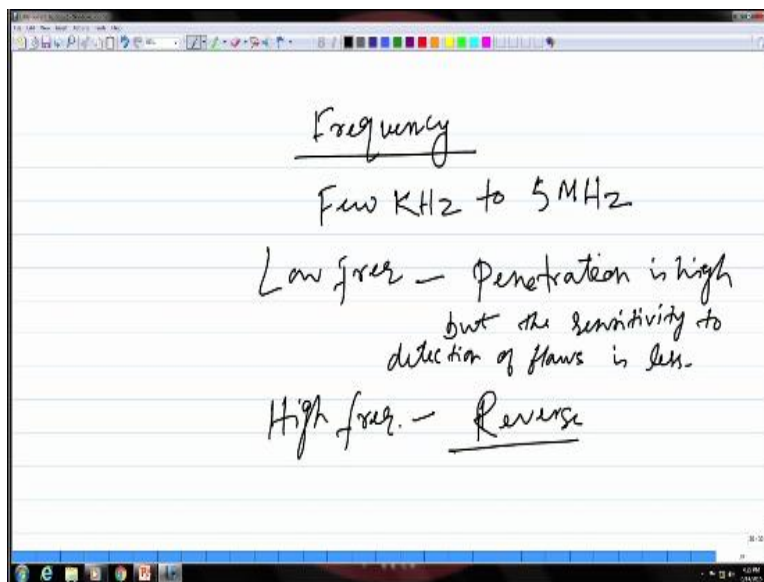 Frequency
Few KHz to 5 MHz
Low freq — Penetration is high
but the sensitivity to
detection of flaws is less.
High freq. — Reverse